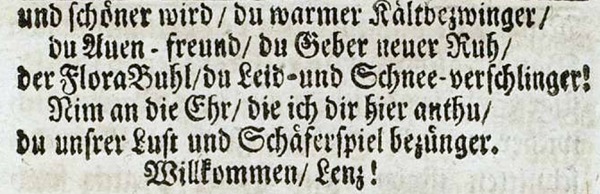 und ſchöner wird / du warmer Kältbezwinger /
du Auen-freund / du Geber neuer Ruh /
der Flora Buhl / du Leid- und Schnee-verſchlinger!
Nim an die Ehr / die ich dir hier anthu /
du unſrer Luſt und Schäferſpiel bezünger.
Willkommen / Lenz!